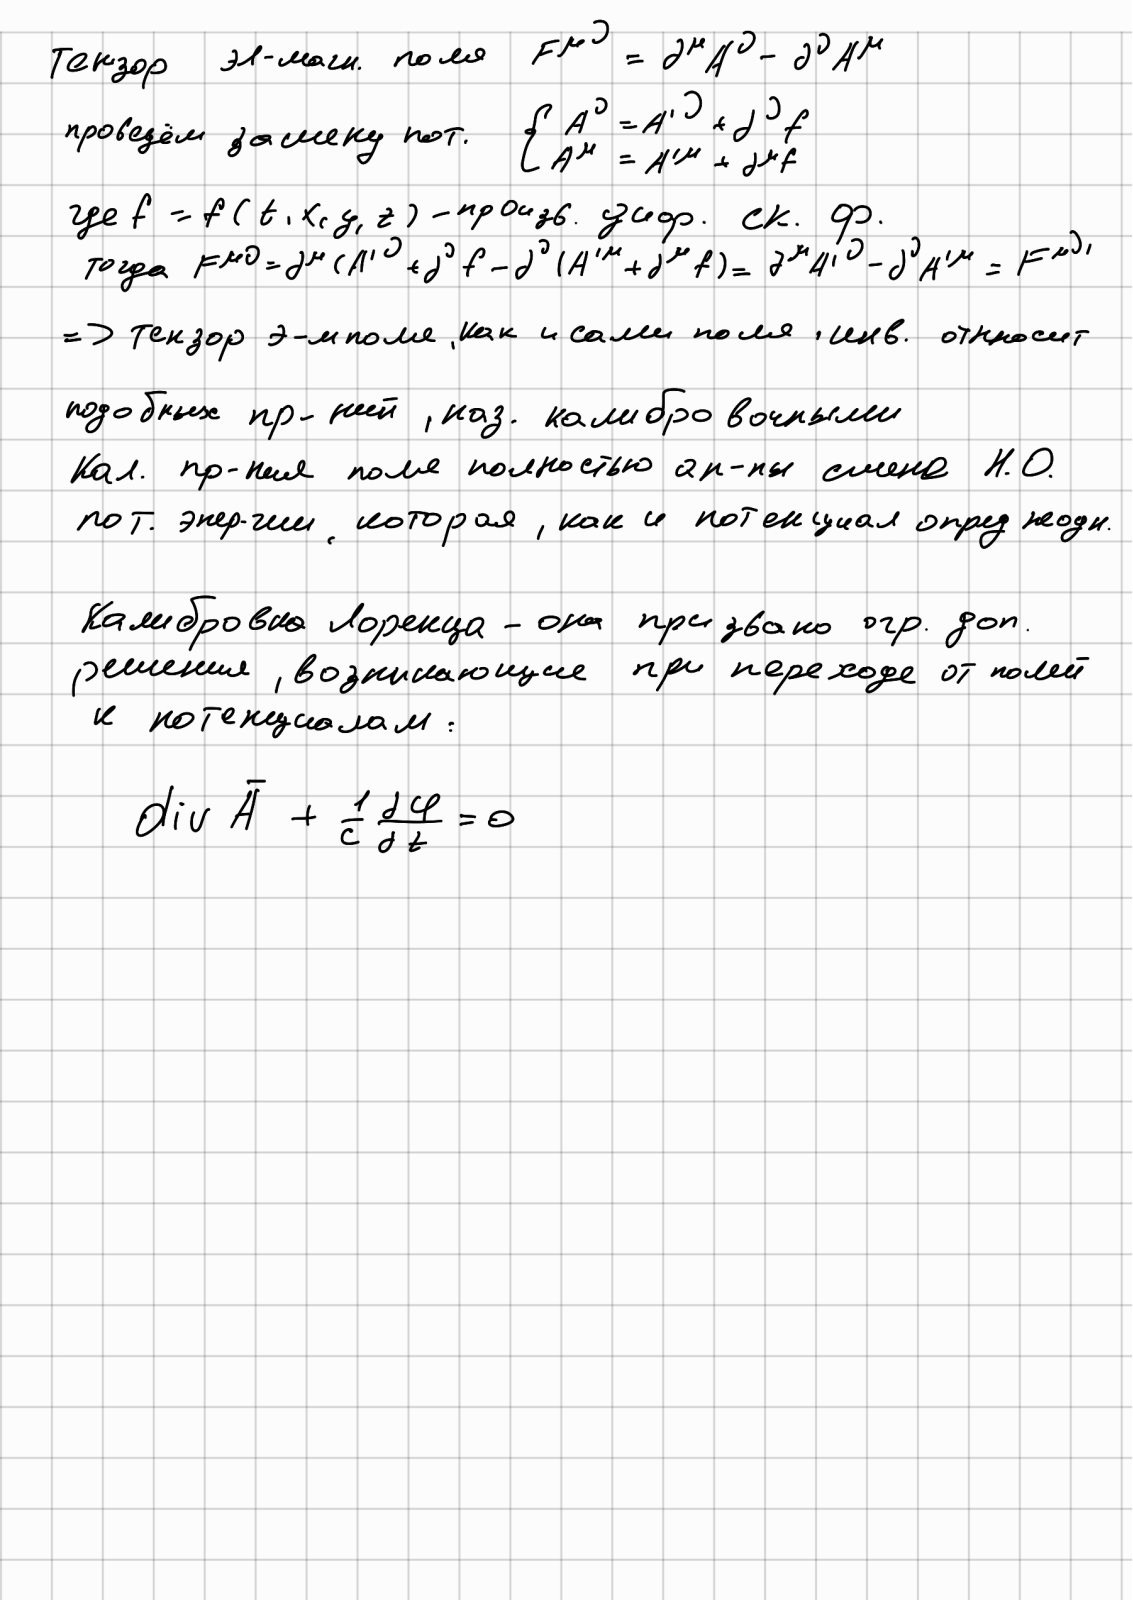 Тензор эл-магн. поля F^{μν} = ∂^μ A^ν - ∂^ν A^μ
проведём замену пот. { A^ν = A'^ν + ∂^ν f
A^μ = A'^μ + ∂^μ f
где f = f(t, x, y, z) - произв. диф. ск. ф.
Тогда F^{μν} = ∂^μ (A'^ν + ∂^ν f - ∂^ν (A'^μ + ∂^μ f) = ∂^μ A'^ν - ∂^ν A'^μ = F^{μν}'
=> тензор э-м поля, как и сами поля, инв. относит
подобных пр-ний, наз. калибровочными
Кал. пр-ния поля полностью ан-ны смене Н.О.
пот. энергии, которая, как и потенциал опред неодн.
Калибровка Лоренца - она призвана огр. доп.
решения, возникающие при переходе от полей
к потенциалам:
div Ā + 1/c ∂φ/∂t = 0